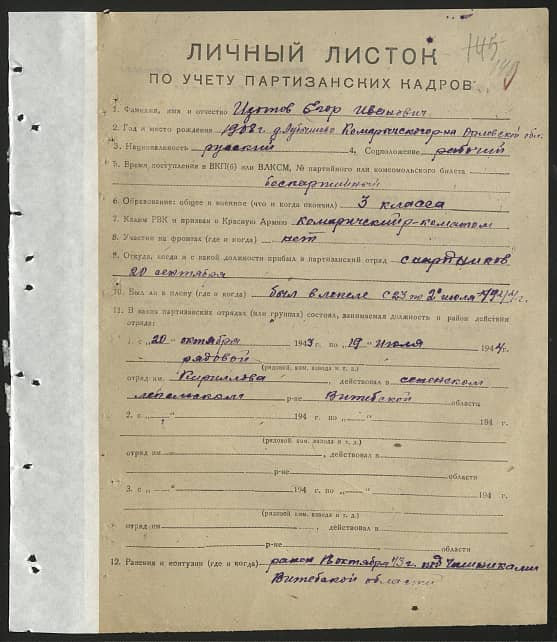 145
ЛИЧНЫЙ ЛИСТОК
ПО УЧЕТУ ПАРТИЗАНСКИХ КАДРОВ
1. Фамилия, имя и отчество Изотов Егор Иванович
2. Год и место рождения 1908 г. д. Лубошево Комаричского р-на Орловской обл.
3. Национальность русский 4. Соцположение рабочий
5. Время поступления в ВКП(б) или ВЛКСМ, № партийного или комсомольского билета
беспартийный
6. Образование: общее и военное (что и когда окончил) 3 класса
7. Каким РВК и призван в Красную Армию Комаричский р-
8. Участие на фронтах (где и когда) нет
9. Откуда, когда и с какой должности прибыл в партизанский отряд
20 сентября
10. Был ли в плену (где и когда) был в лепеле с 23 по 2 июля
11. В каких партизанских отрядах (или группах) состоял, занимаемая должность и район действия
отряда:
1. с „20“ октября 1943 г. по „19“ июля 1944 г.
рядовой
(рядовой, ком. взвода и т. д.)
отряд им. Кириллова, действовал в сененском
лепельском р-не Витебской области
2. с „—“ 194 г. по „—“ 194 г.
(рядовой, ком. взвода и т. д.)
отряд им , действовал в
р-не области
3. с „—“ 194 г. по „—“ 194 г.
(рядовой, ком. взвода и т. д.)
отряд им , действовал в
р-не области
12. Ранения и контузии (где и когда) ранен октября 43 г. под Чашниками
Витебской области